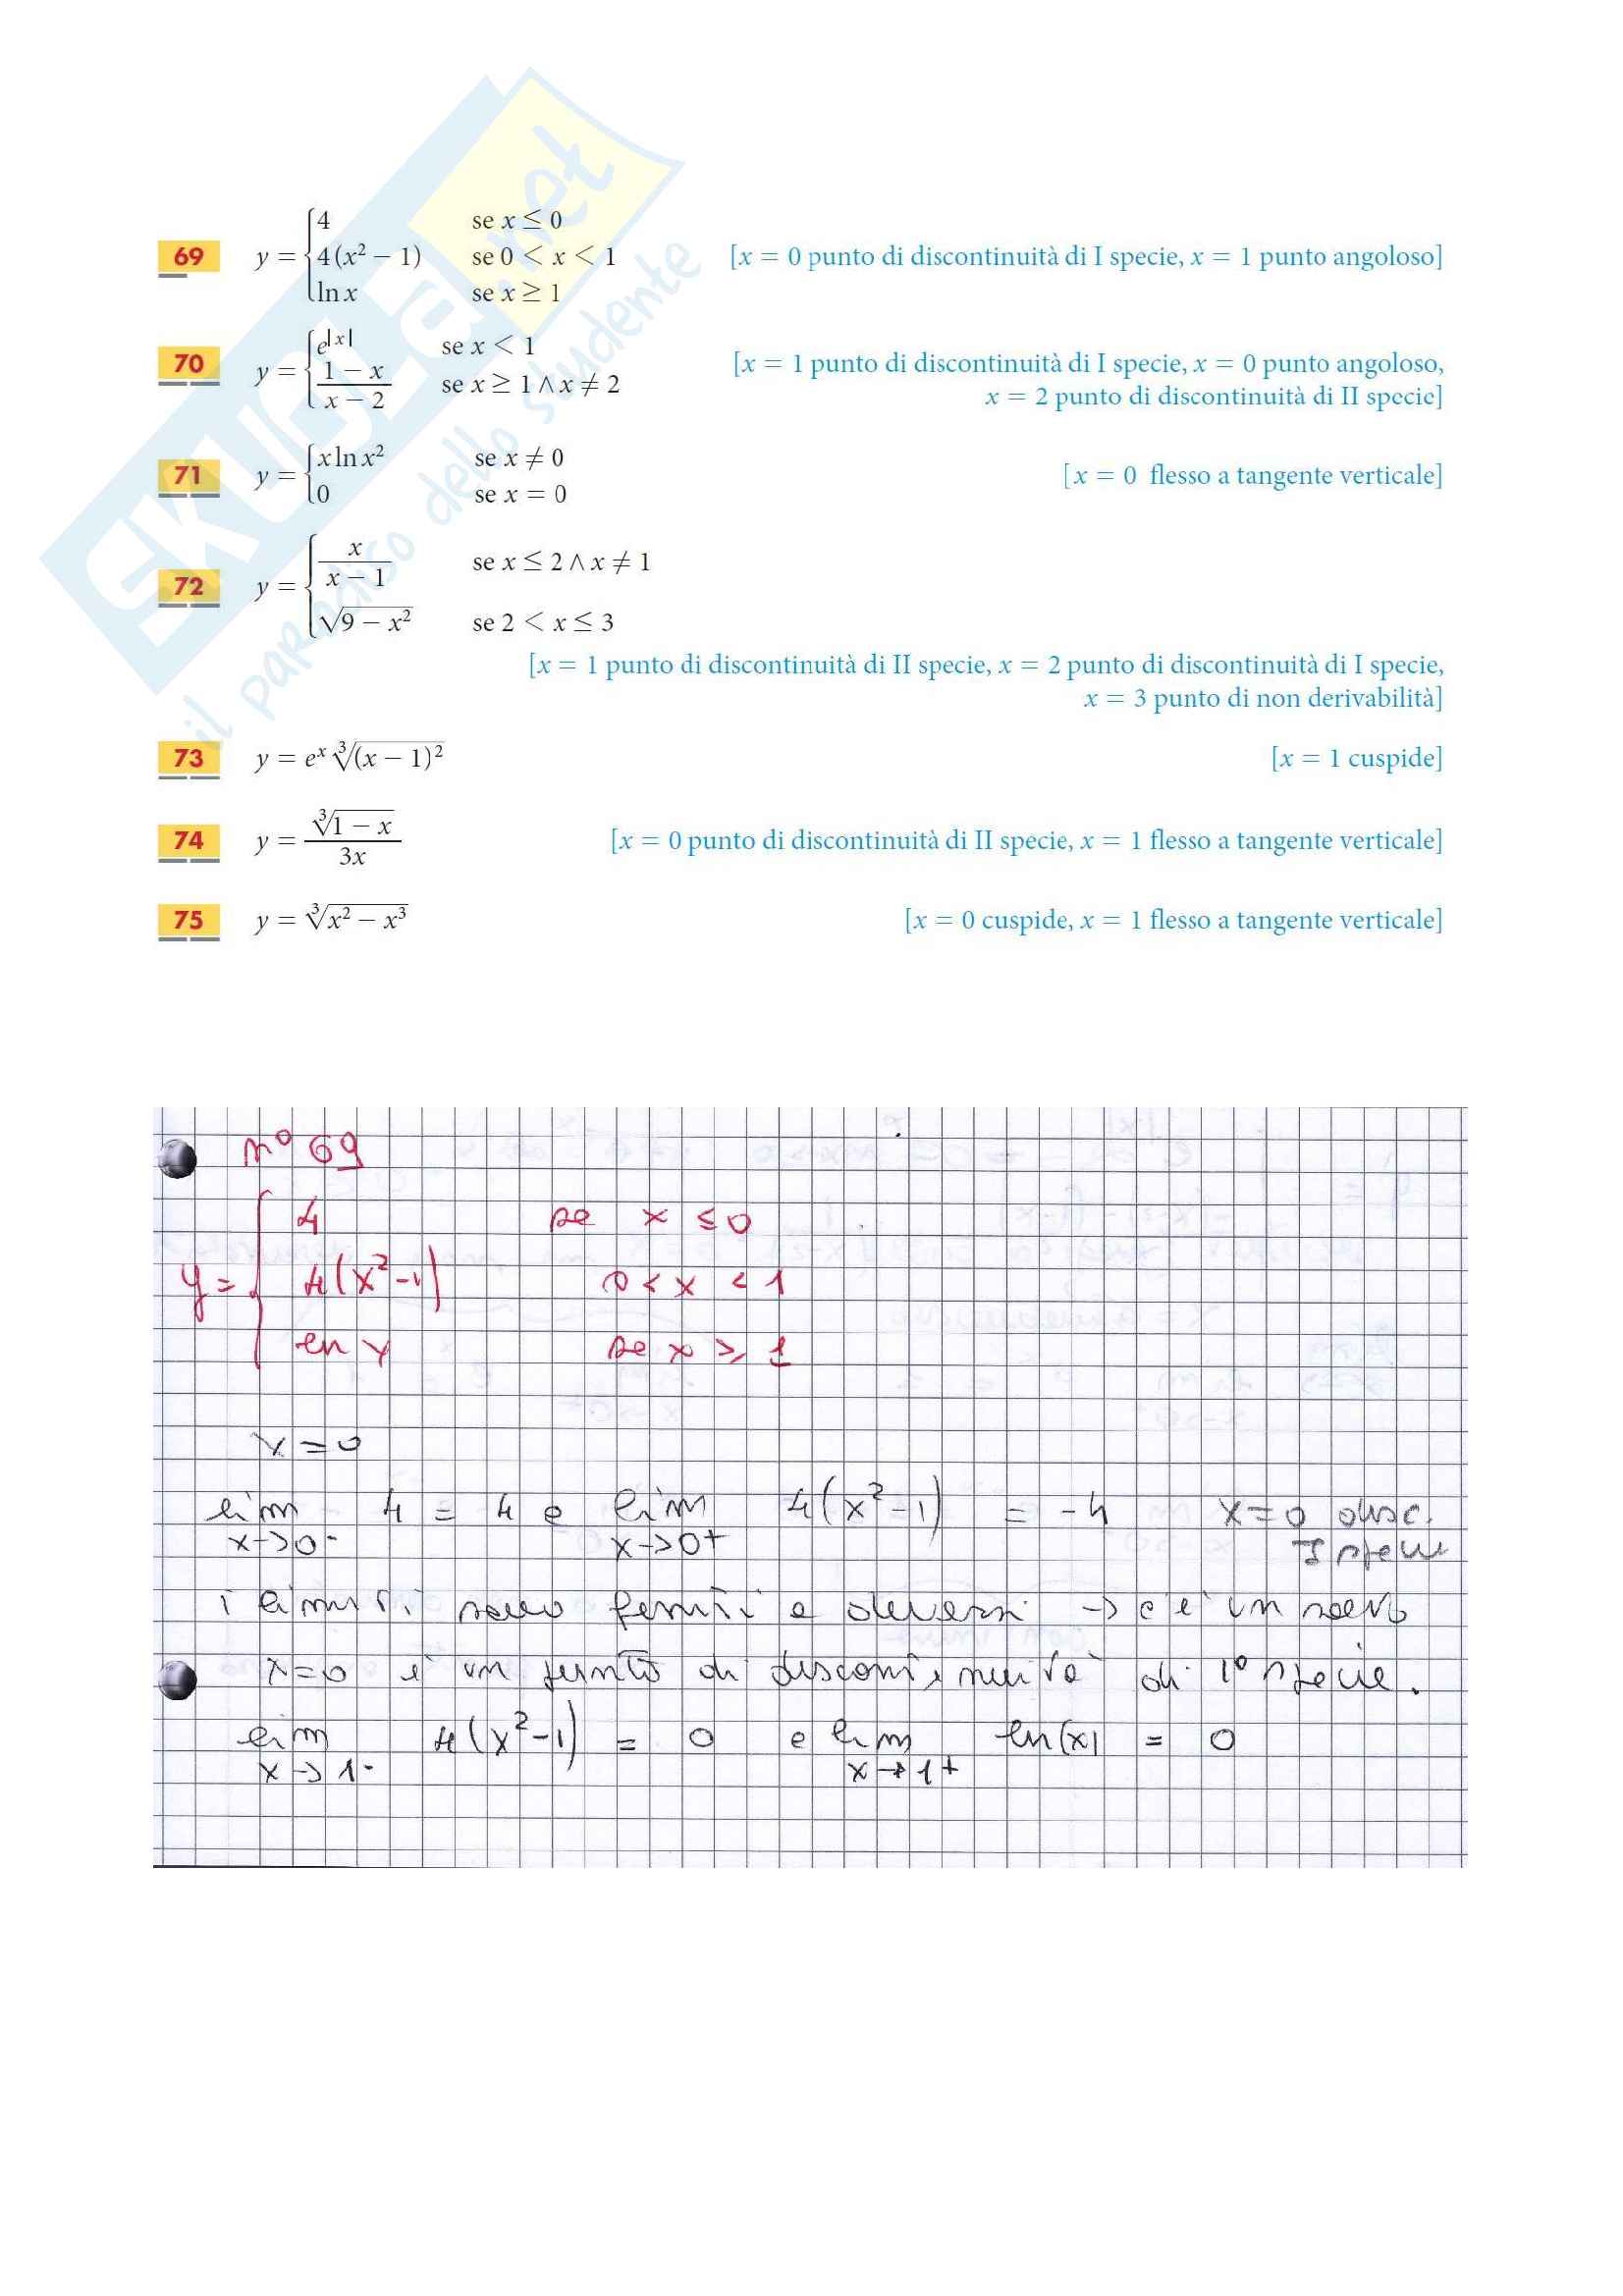 SKUOLA.net
il paradiso dello studente
69 y = { 4 se x ≤ 0
4(x² − 1) se 0 < x < 1 [x = 0 punto di discontinuità di I specie, x = 1 punto angoloso]
ln x se x ≥ 1
70 y = { e^|x| se x < 1 [x = 1 punto di discontinuità di I specie, x = 0 punto angoloso,
(1 − x)/(x − 2) se x ≥ 1 ∧ x ≠ 2 x = 2 punto di discontinuità di II specie]
71 y = { x ln x² se x ≠ 0 [x = 0 flesso a tangente verticale]
0 se x = 0
72 y = { x/(x − 1) se x ≤ 2 ∧ x ≠ 1
√(9 − x²) se 2 < x ≤ 3
[x = 1 punto di discontinuità di II specie, x = 2 punto di discontinuità di I specie,
x = 3 punto di non derivabilità]
73 y = eˣ ∛(x − 1)² [x = 1 cuspide]
74 y = ∛(1 − x)/3x [x = 0 punto di discontinuità di II specie, x = 1 flesso a tangente verticale]
75 y = ∛(x² − x³) [x = 0 cuspide, x = 1 flesso a tangente verticale]
n° 69
y = { 4 se x ≤ 0
4(x² − 1) 0 < x < 1
ln x se x ≥ 1
x = 0
lim x→0⁻ 4 = 4 e lim x→0⁺ 4(x² − 1) = −4 x = 0 disc.
I specie
i limiti sono finiti e diversi → c'è un salto
x = 0 è un punto di discontinuità di 1° specie.
lim x→1⁻ 4(x² − 1) = 0 e lim x→1⁺ ln(x) = 0